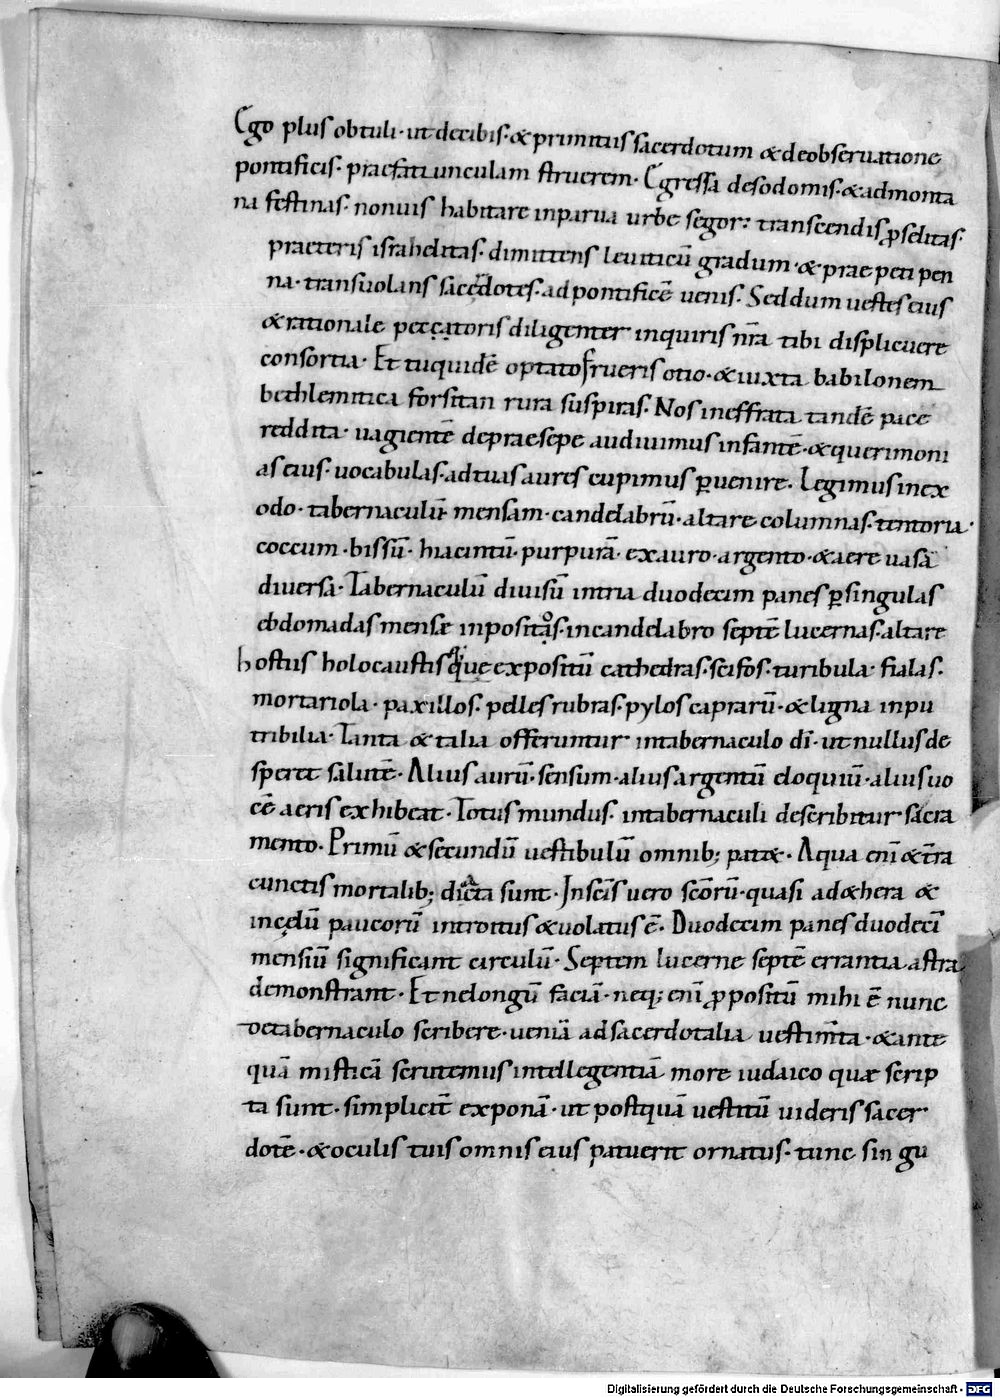 Ego plus obtuli· ut decibis· & primitiis sacerdotum & deobseruatione
pontificis· praefatiunculam struerem· Egressa desodomis· & admonta
na festinas· nonuis habitare inparua urbe segor: transcendis ꝓselitas·
praeteris israhelitas· dimittens leuiticū gradum· & praepeti pen
na· transuolans sacēdotes· adpontificē uenis· Sed dum uestes eius
& rationale peccatoris diligenter inquiris nr̄a tibi displicuere
consortia· Et tuquidē optato frueris otio· & iuxta babilonem
bethlemitica forsitan rura suspiras· Nos ineffrata tandē pace
reddita· uagientē depraesepe audiuimus infantē· & querimoni
as eius· uocabulas· adtuas aures cupimus ꝑuenire· Legimus inex
odo· tabernaculū· mensam· candelabrū· altare columnas· tentoria·
coccum· bissū· hiacintū· purpurā· exauro· argento· & aere uasa
diuersa· Tabernaculū diuisū intria duodecim panes ꝑsingulas
ebdomadas mense inpositas· incandelabro septē lucernas· altare
hostiis holocaustisque expositū cathedras· scifos· turibula· fialas·
mortariola· paxillos· pelles rubras· pylos caprarū· & ligna inpu
tribilia· Tanta & talia offeruntur intabernaculo dī· ut nullus de
speret salutē· Alius aurū· sensum· alius argentū eloquiū· alius uo
cē aeris exhibeat· Totus mundus· intabernaculi describitur sacra
mento· Primū & secundū uestibulū omnib; patet· Aqua enī & t̄ra
cunctis mortalib; dicta sunt· Inscīs uero scōrū· quasi ad&hera &
incędū paucorū introitus & uolatus ē· Duodecim panes duodecī
mensiū significant circulū· Septem lucerne septē errantia astra
demonstrant· Et nelongū faciā· neq; enī ꝓpositū mihi ē nunc
detabernaculo scribere· ueniā adsacerdotalia uestim̄ta· & ante
quā misticā scrutemus intellegentiā more iudaico quae scrip
ta sunt· simplicit̄ exponā· ut postquā uestitū uideris sacer
dotē· & oculis tuis omnis eius patuerit ornatus· tunc singu
Digitalisierung gefördert durch die Deutsche Forschungsgemeinschaft - DFG